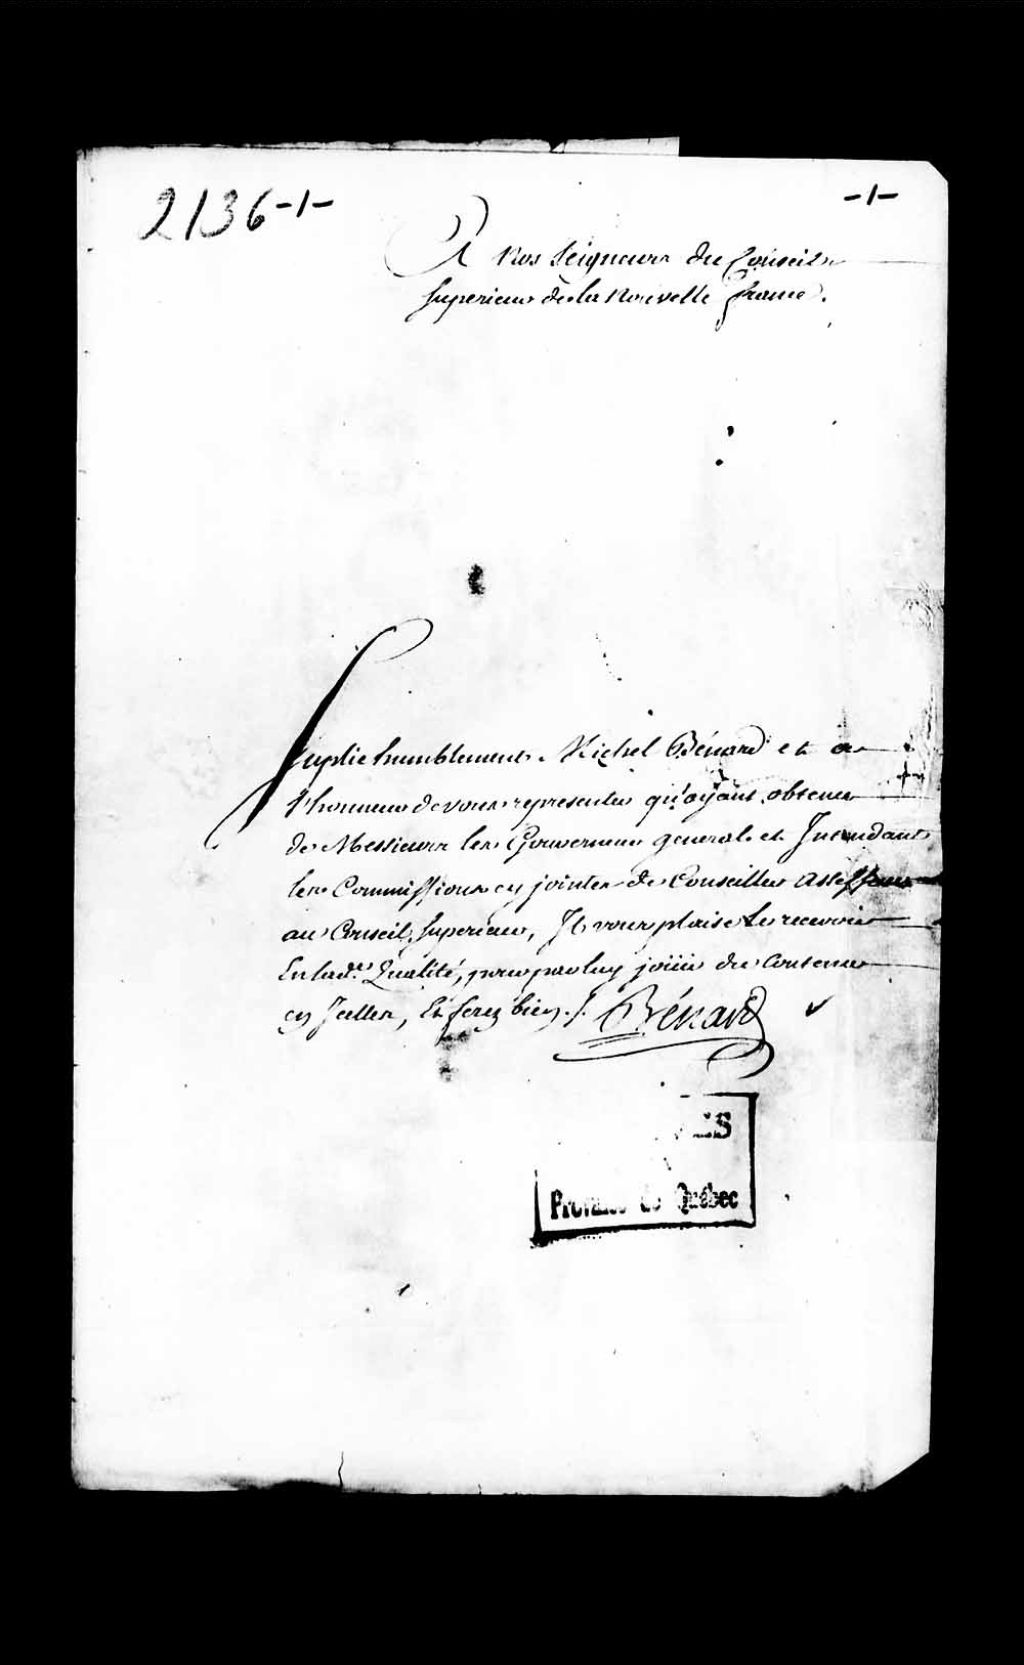 2136-1-
-1-
A Nos Seigneurs du Conseil
Superieur de la Nouvelle France.
Suplie humblement Michel Bénard et a
l'honneur de vous representer qu'ayant obtenu
de Messieurs les Gouverneur general et Intendant
les Commissions cy jointes de Conseiller Assesseur
au Conseil Superieur, Il vous plaise Le recevoir
En lad.e Qualité, pour par luy joüir du Contenu
en Icelles, Et ferez bien ./. Bénard
ES
Province de Québec